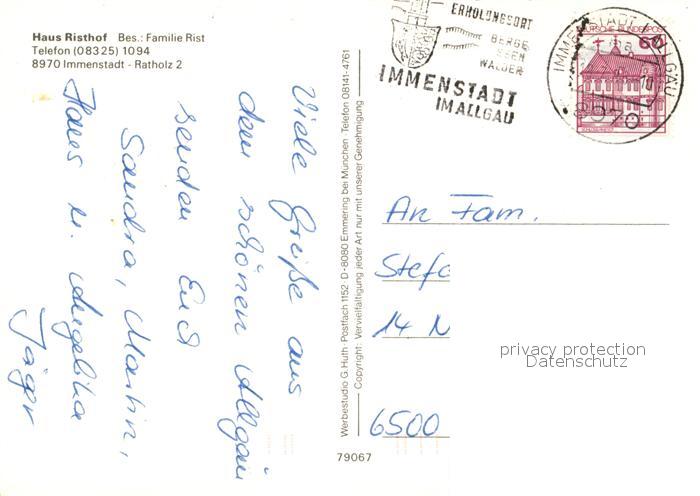 Haus Risthof Bes.: Familie Rist
Telefon (08325) 1094
8970 Immenstadt - Ratholz 2
Viele Grüße aus
dem schönen Allgäu
senden Euch
Sandra, Martin,
Hans u. Angelika
Jäger
Werbestudio G. Huth · Postfach 1152 D-8080 Emmering bei München · Telefon 08141-4761
Copyright: Vervielfältigung jeder Art nur mit unserer Genehmigung
79067
ERHOLUNGSORT
BERGE
SEEN
WÄLDER
IMMENSTADT
IM ALLGÄU
IMMENSTADT I. ALLGÄU
8970
DEUTSCHE BUNDESPOST
60
An Fam.
Stef
14 N
6500
privacy protection
Datenschutz